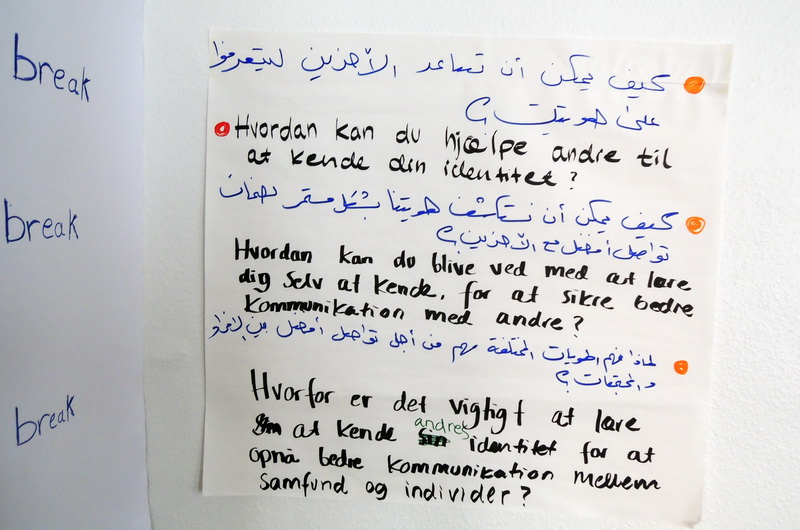 break
break
break
كيف يمكن أن تساعد الآخرين ليتعرفوا
على هويتك؟
Hvordan kan du hjælpe andre til
at kende din identitet?
كيف يمكن أن نستكشف هويتنا بشكل مستمر لضمان
تواصل أفضل مع الآخرين؟
Hvordan kan du blive ved med at lære
dig selv at kende, for at sikre bedre
kommunikation med andre?
لماذا فهم الهويات المختلفة مهم من أجل تواصل أفضل بين الأفراد
والمجتمعات؟
Hvorfor er det vigtigt at lære
at kende andres identitet for at
opnå bedre kommunikation mellem
samfund og individer?